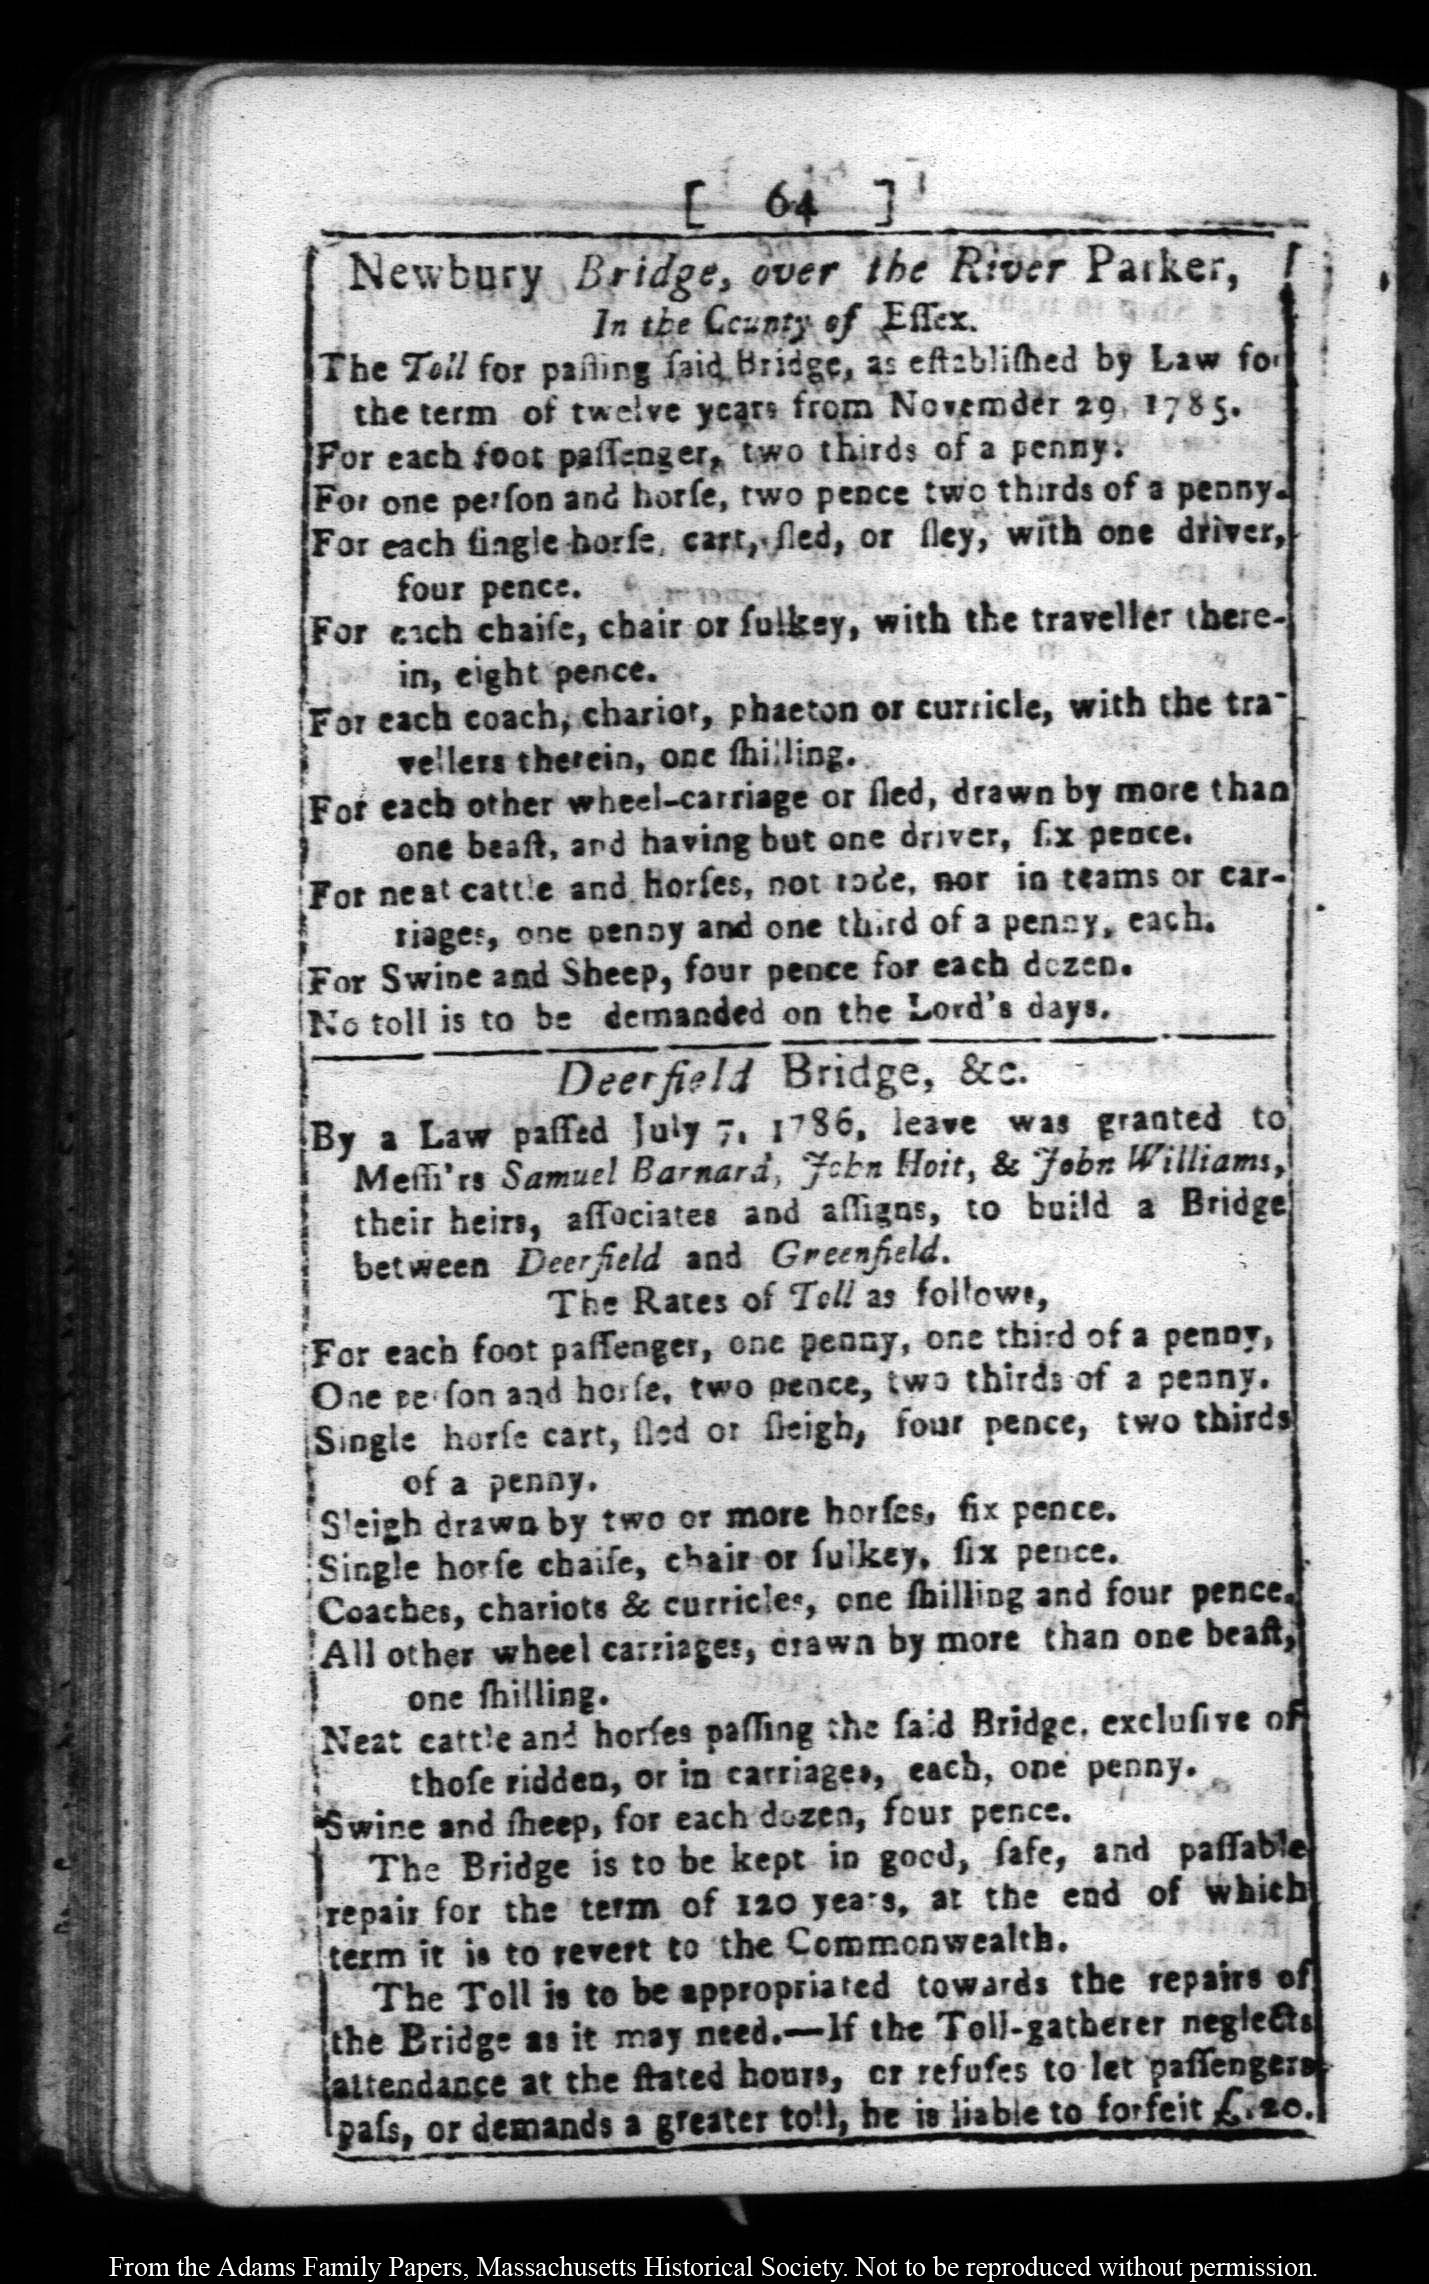 [ 64 ]
Newbury Bridge, over the River Parker,
In the County of Eſſex.
The Toll for paſſing ſaid Bridge, as eſtabliſhed by Law for
the term of twelve years from Novemder 29, 1785.
For each foot paſſenger, two thirds of a penny.
For one perſon and horſe, two pence two thirds of a penny.
For each ſingle horſe, cart, ſled, or ſley, with one driver,
four pence.
For each chaiſe, chair or ſulkey, with the traveller there-
in, eight pence.
For each coach, chariot, phaeton or curricle, with the tra-
vellers therein, one ſhilling.
For each other wheel-carriage or ſled, drawn by more than
one beaſt, and having but one driver, ſix pence.
For neat cattle and horſes, not rode, nor in teams or car-
riages, one penny and one third of a penny, each.
For Swine and Sheep, four pence for each dozen.
No toll is to be demanded on the Lord's days.
Deerfield Bridge, &c.
By a Law paſſed July 7, 1786, leave was granted to
Meſſ'rs Samuel Barnard, John Hoit, & John Williams,
their heirs, aſſociates and aſſigns, to build a Bridge
between Deerfield and Greenfield.
The Rates of Toll as follows,
For each foot paſſenger, one penny, one third of a penny,
One perſon and horſe, two pence, two thirds of a penny.
Single horſe cart, ſled or ſleigh, four pence, two thirds
of a penny.
Sleigh drawn by two or more horſes, ſix pence.
Single horſe chaiſe, chair or ſulkey, ſix pence.
Coaches, chariots & curricles, one ſhilling and four pence.
All other wheel carriages, drawn by more than one beaſt,
one ſhilling.
Neat cattle and horſes paſſing the ſaid Bridge, excluſive of
thoſe ridden, or in carriages, each, one penny.
Swine and ſheep, for each dozen, four pence.
The Bridge is to be kept in good, ſafe, and paſſable
repair for the term of 120 years, at the end of which
term it is to revert to the Commonwealth.
The Toll is to be appropriated towards the repairs of
the Bridge as it may need.—If the Toll-gatherer neglects
attendance at the ſtated hours, or refuſes to let paſſengers
paſs, or demands a greater toll, he is liable to forfeit £.20.
From the Adams Family Papers, Massachusetts Historical Society. Not to be reproduced without permission.